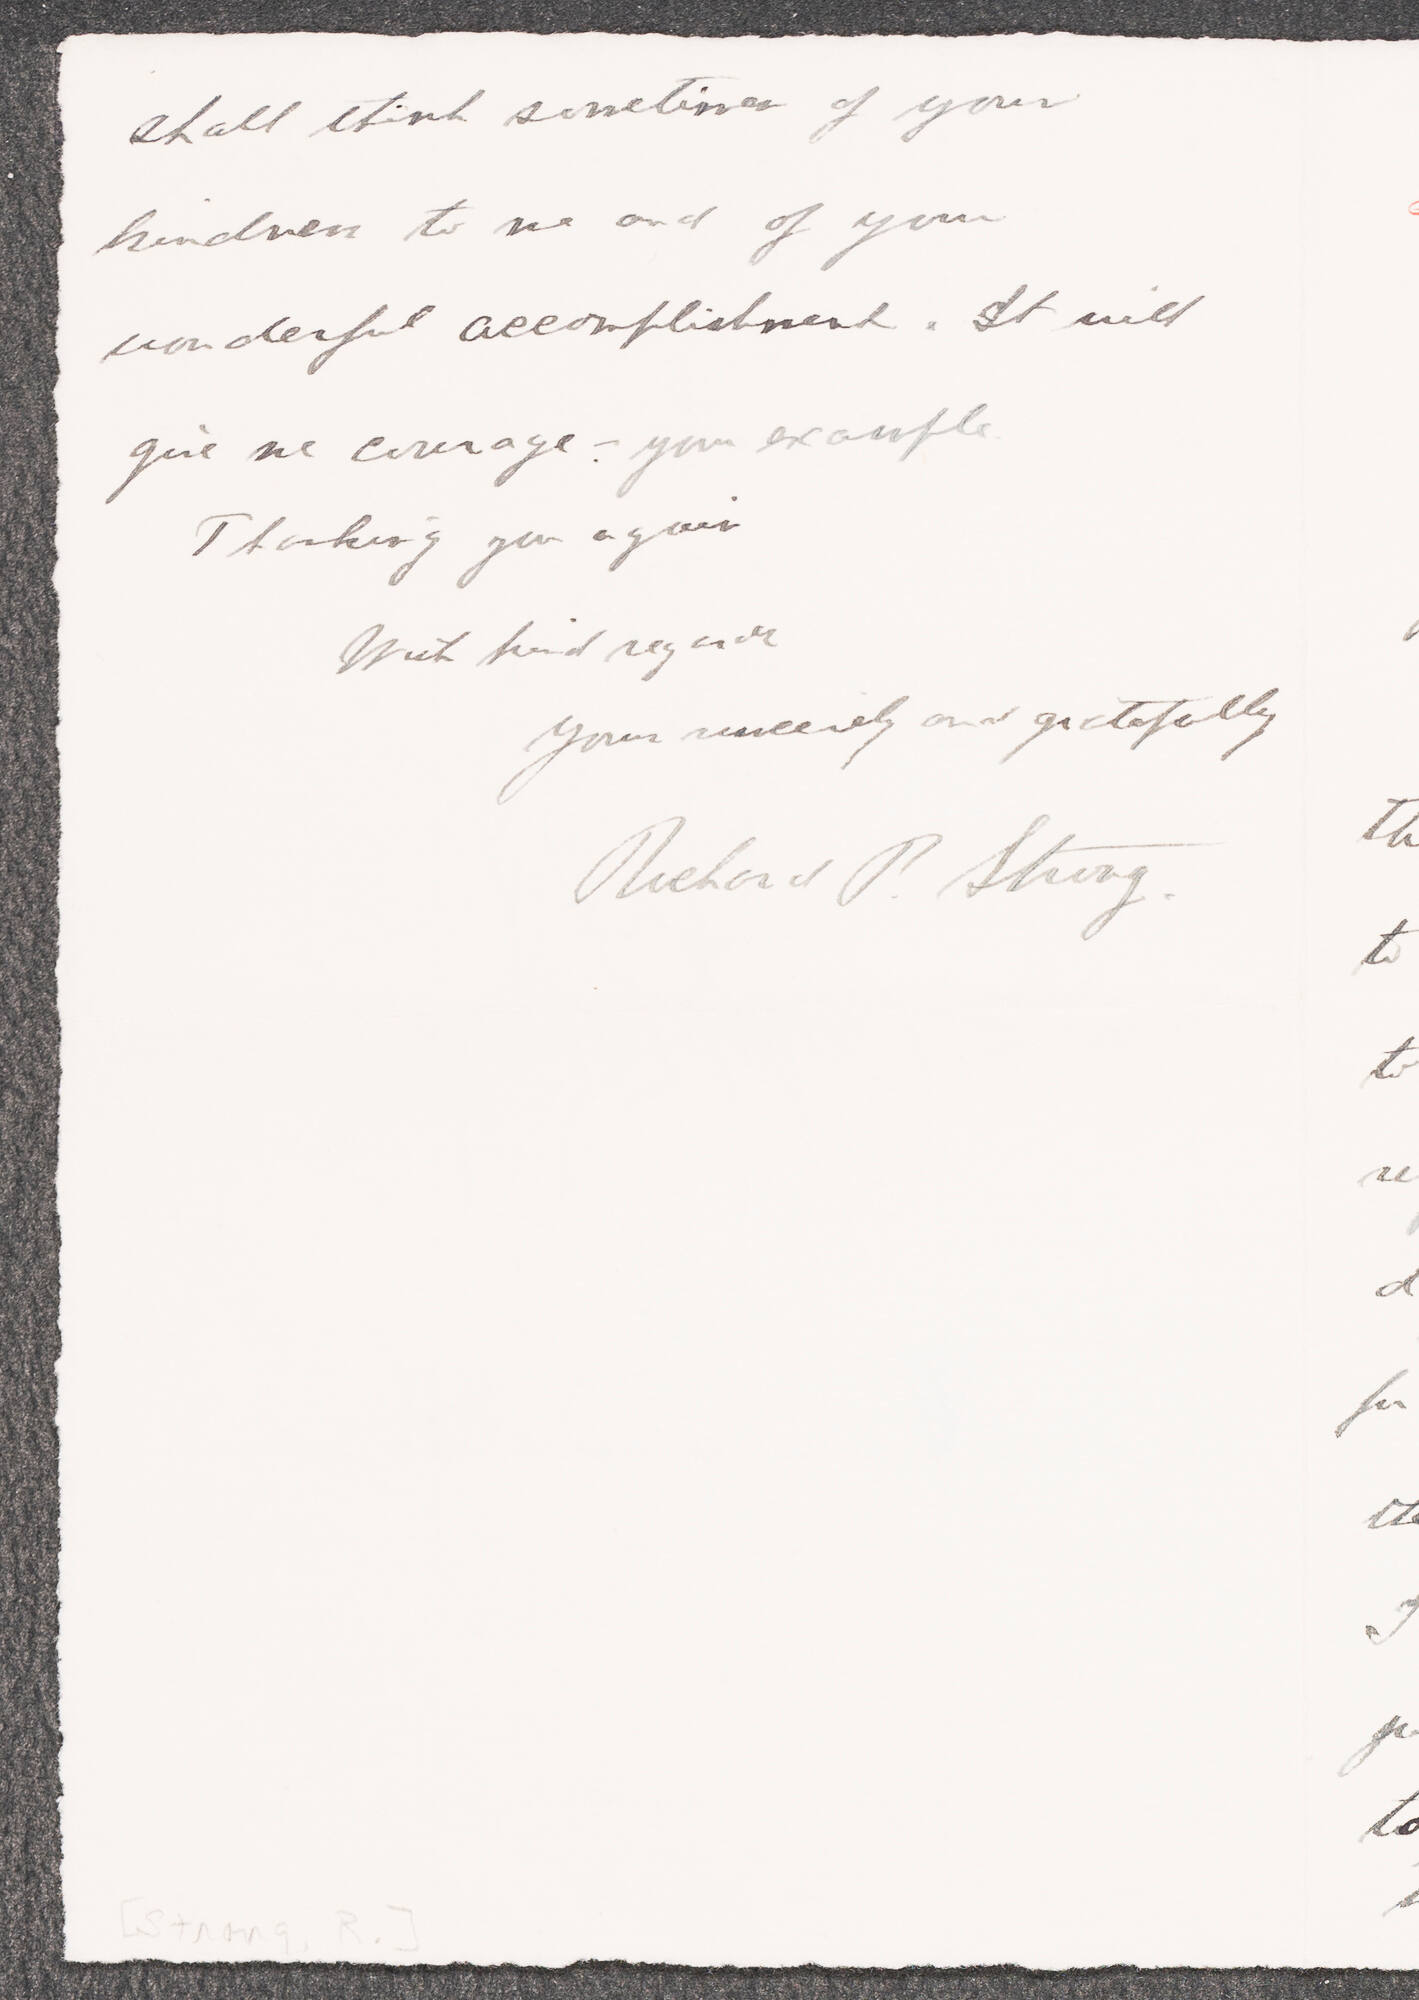 shall think sometimes of your
kindness to me and of your
wonderful accomplishment. It will
give me courage - your example.
Thanking you again
With kind regards
Yours sincerely and gratefully
Richard P. Strong.
[Strong, R.]
to
to
for